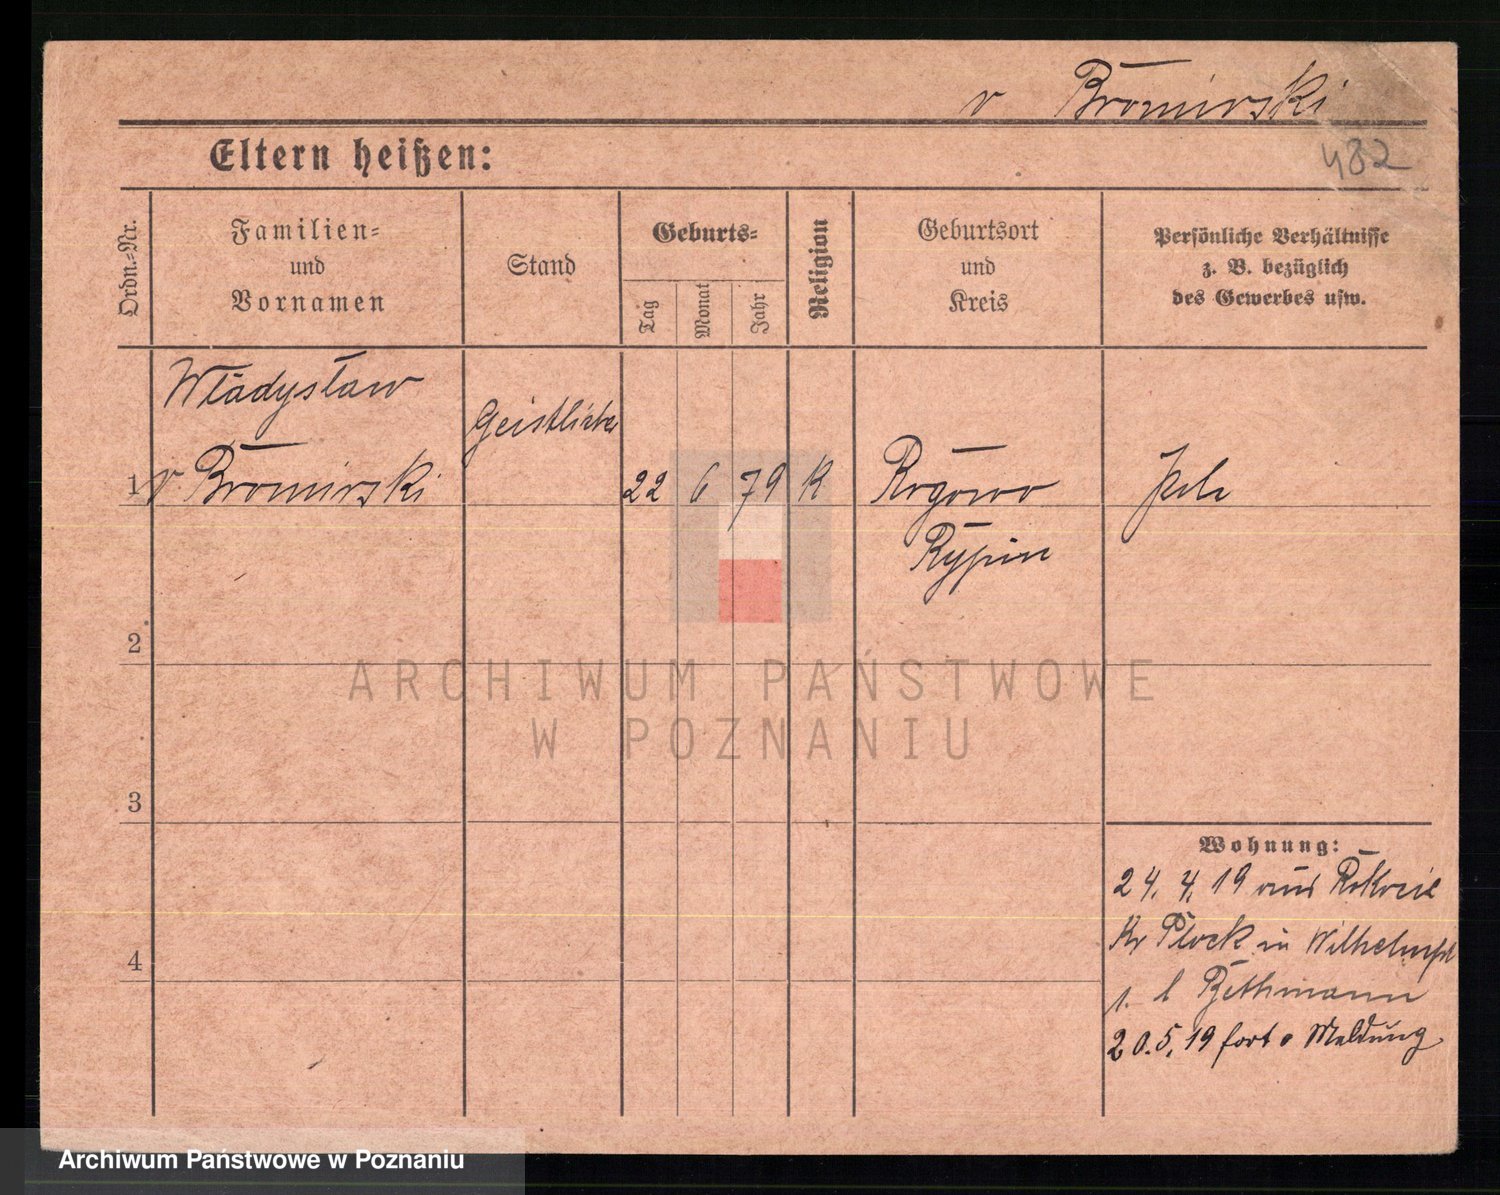 v Bromirski
482
Eltern heißen:
Ordn.-Nr.
Familien-
und
Vornamen
Stand
Geburts-
Tag
Monat
Jahr
Religion
Geburtsort
und
Kreis
Persönliche Verhältnisse
z. B. bezüglich
des Gewerbes usw.
Władysław
Geistlicher
1 v Bromirski 22 6 79 K Rogowo
Rypin
2
3
4
Wohnung:
24. 4. 19 aus
Kr Plock in
Bethmann
20.5.19 fort o Meldung
ARCHIWUM PAŃSTWOWE
W POZNANIU
Archiwum Państwowe w Poznaniu